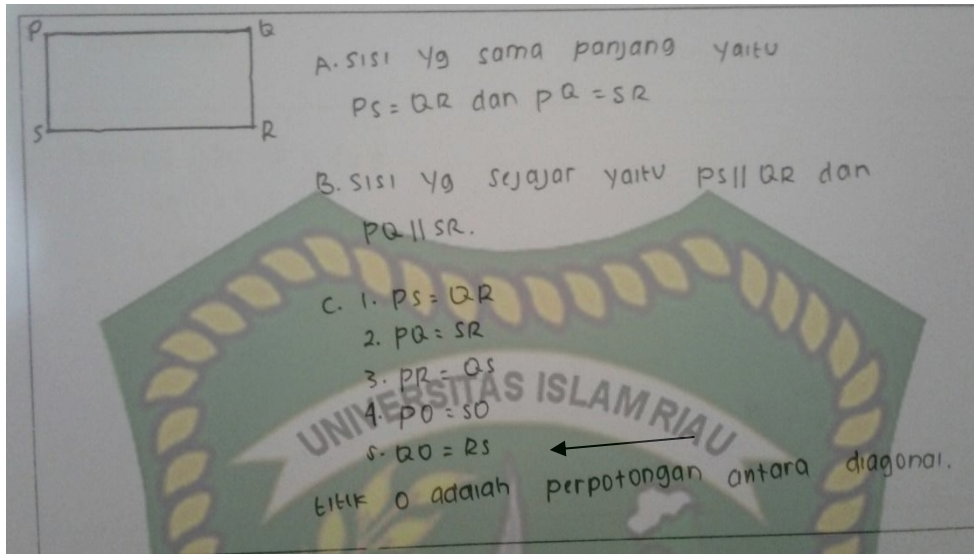 P Q
S R
A. Sisi yg sama panjang yaitu
PS = QR dan PQ = SR
B. Sisi yg sejajar yaitu PS || QR dan
PQ || SR.
C. 1. PS = QR
2. PQ = SR
3. PR = QS
4. PO = SO
5. QO = RS
titik O adalah perpotongan antara diagonal.
UNIVERSITAS ISLAM RIAU